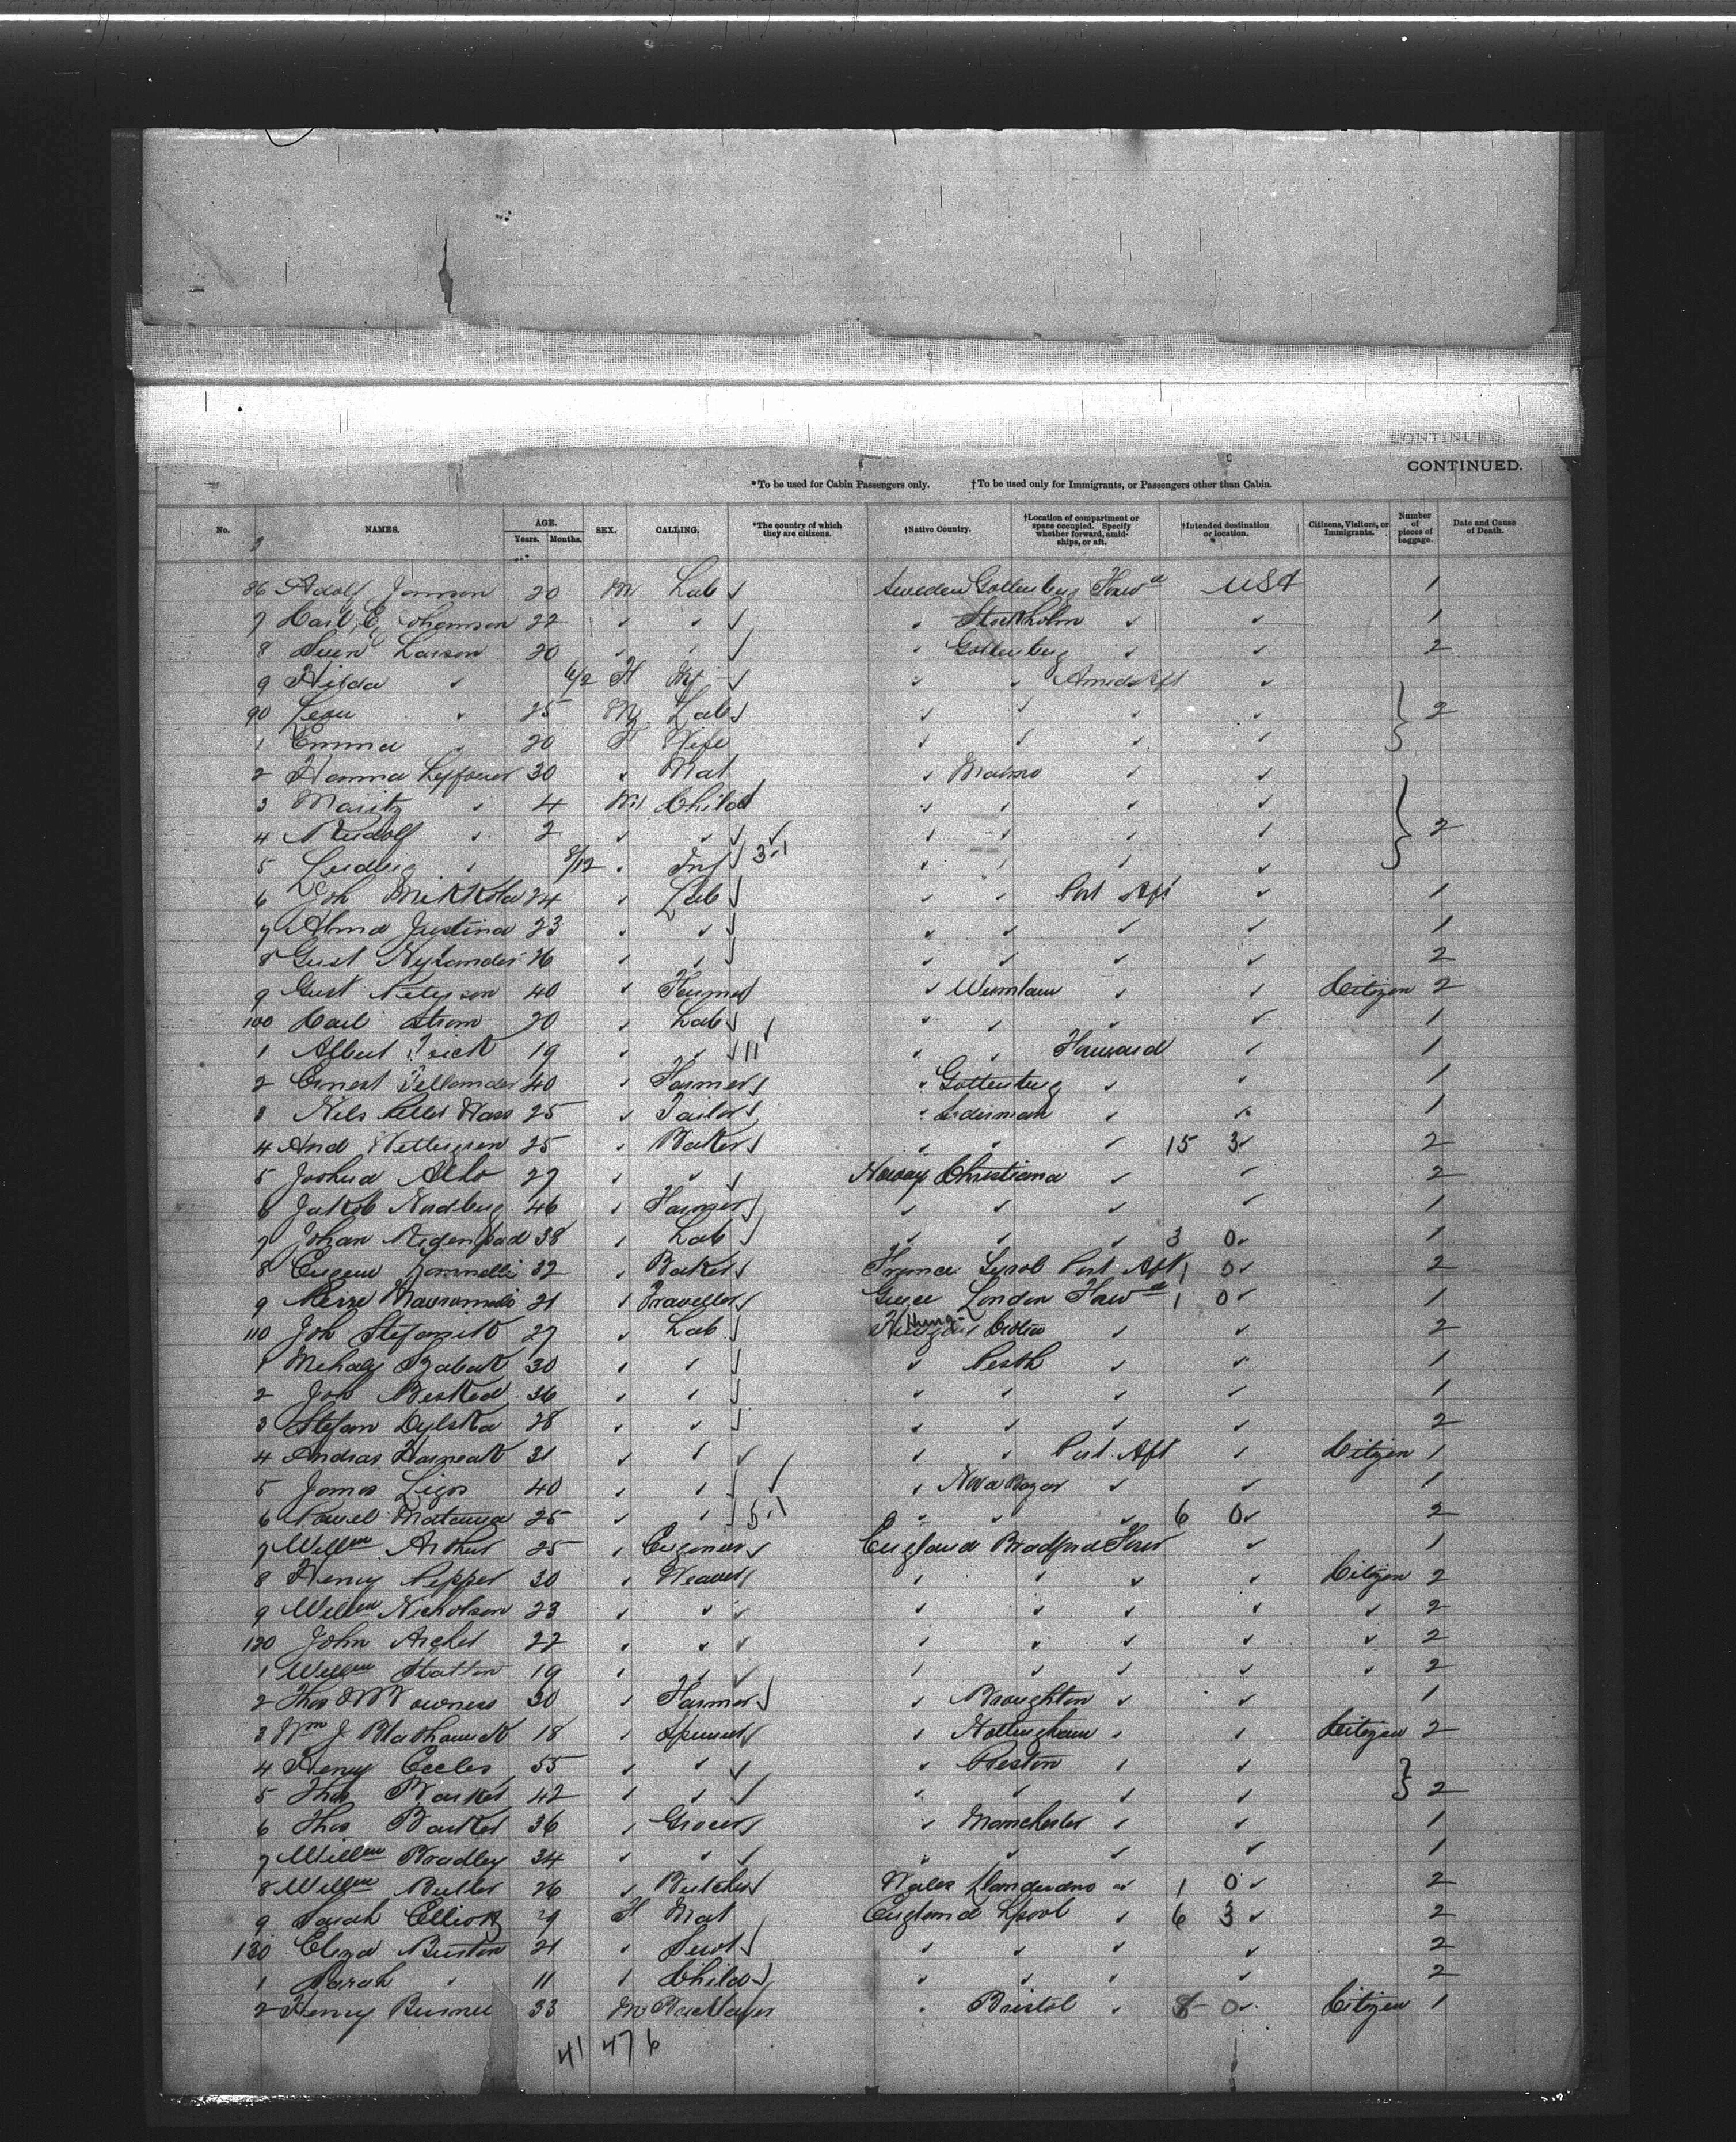 CONTINUED
CONTINUED.
*To be used for Cabin Passengers only. †To be used only for Immigrants, or Passengers other than Cabin.
No. NAMES. AGE. Years. Months. SEX. CALLING. *The country of which they are citizens. †Native Country. †Location of compartment or space occupied. Specify whether forward, amidships, or aft. †Intended destination or location. Citizens, Visitors, or Immigrants. Number of pieces of baggage. Date and Cause of Death.
86 Adolf 20 M Lab Sweden Gottenburg Forwd USA 1
7 Carl E Johansson 22 ✓ ✓ ✓ Stockholm ✓ ✓ 1
8 Sven Larson 20 ✓ Gottenburg ✓ ✓ 2
9 Hilda ✓ F ✓ ✓ ✓
90 ✓ 25 M Lab ✓ ✓ ✓ ✓ 2
1 Emma ✓ 20 F Wife ✓ ✓ ✓ ✓
2 Hanna 30 ✓ Mat ✓ Malmo ✓ ✓
3 Moritz ✓ 4 M Child ✓ ✓ ✓ ✓
4 Rudolf ✓ 2 ✓ ✓ ✓ ✓ ✓ ✓ 2
5 Ludvig ✓ 8/12 ✓ Inf 3-1 ✓ ✓ ✓ ✓
6 Joh Mikkola 24 ✓ Lab ✓ ✓ Port Aft ✓ 1
7 Alma Justina 23 ✓ ✓ ✓ ✓ ✓ ✓ 1
8 Gust Nylander 26 ✓ ✓ ✓ ✓ ✓ ✓ 2
9 Gust Peterson 40 ✓ Farmer ✓ ✓ ✓ Citizen 2
100 Carl Strom 20 ✓ Lab ✓ ✓ ✓ ✓ 1
1 Albert 19 ✓ ✓ 11 ✓ ✓ Forward ✓ 1
2 Ernest 40 ✓ Farmer ✓ Gottenburg ✓ ✓ 1
3 Nils 25 ✓ Tailor ✓ ✓ ✓ 1
4 And Wettergren 25 ✓ Baker ✓ ✓ ✓ 15 3 ✓ 2
5 Joshua Alho 27 ✓ ✓ Norway Christiana ✓ ✓ 2
6 Jakob Nordberg 46 ✓ Farmer ✓ ✓ ✓ ✓ 1
7 Johan 38 ✓ Lab ✓ ✓ ✓ 3 0 ✓ 1
8 Eugene 32 ✓ Baker France Port Aft 1 0 ✓ 2
9 21 ✓ Traveller Greece London Forwd 1 0 ✓ 1
110 Joh Stefanik 27 ✓ Lab Hung- ✓ ✓ 2
1 Mihaly 30 ✓ ✓ ✓ Pesth ✓ ✓ 1
2 Joh 36 ✓ ✓ ✓ ✓ ✓ ✓ 1
3 Stefan 28 ✓ ✓ ✓ ✓ ✓ ✓ 2
4 Andras 31 ✓ ✓ ✓ ✓ Port Aft ✓ Citizen 1
5 40 ✓ ✓ ✓ ✓ ✓ 1
6 Pawel 25 ✓ ✓ 5-1 ✓ ✓ ✓ 6 0 ✓ 2
7 Willm Arthur 25 ✓ Engineer England Bradford Forw ✓ 1
8 Henry Pepper 30 ✓ Weaver ✓ ✓ ✓ ✓ Citizen 2
9 Willm Nicholson 23 ✓ ✓ ✓ ✓ ✓ ✓ ✓ 2
120 John Archer 22 ✓ ✓ ✓ ✓ ✓ ✓ ✓ 2
1 Willm Statton 19 ✓ ✓ ✓ ✓ ✓ ✓ ✓ 2
2 Thos 30 ✓ Farmer ✓ Broughton ✓ ✓ 1
3 Wm J 18 ✓ Spinner ✓ Nottingham ✓ ✓ Citizen 2
4 Henry Eccles 55 ✓ ✓ ✓ Preston ✓ ✓
5 Thos Barker 42 ✓ ✓ ✓ ✓ ✓ ✓ 2
6 Thos Barker 36 ✓ Grocer ✓ Manchester ✓ ✓ 1
7 Willm Bradley 34 ✓ ✓ ✓ ✓ ✓ ✓ 1
8 Willm Butler 26 ✓ Butcher Wales Llandudno ✓ 1 0 ✓ 2
9 Sarah Elliott 29 F Mat England Lpool ✓ 6 3 ✓ 2
130 Eliza Burton 21 ✓ Servt ✓ ✓ ✓ ✓ 2
1 Sarah ✓ 11 ✓ Child ✓ ✓ ✓ ✓ 2
2 Henry 33 M ✓ Bristol ✓ 8 0 ✓ Citizen 1
41 47 6